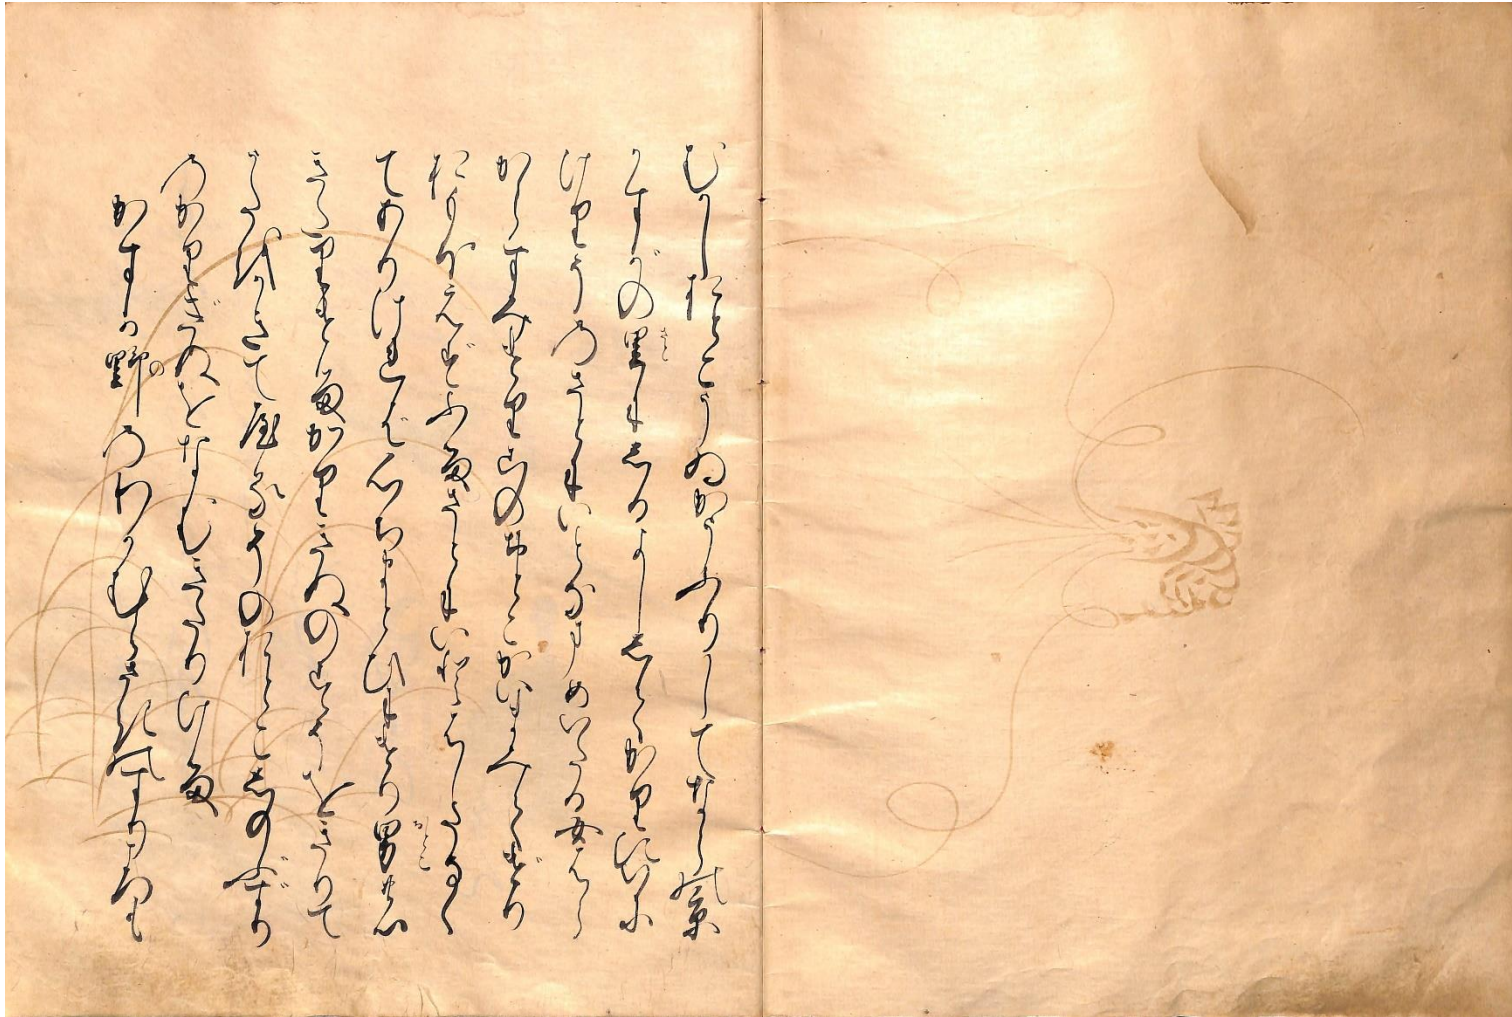 むかしおとこうゐかうふりしてならの京
かすがの里にしるよししてかりにいに
けりそのさとにいとなまめいたる女はら
からすみけりこのおとこかいまみてけり
おもほえずふるさとにいとはしたなく
てありければ心ちまとひにけり男のき
きたりけるかりきぬのすそをきりて
うたをかきてやるそのおとこしのぶずり
のかりぎぬをなむきたりける
かすか野のわかむらさきのすり衣
さと
おとこ
の